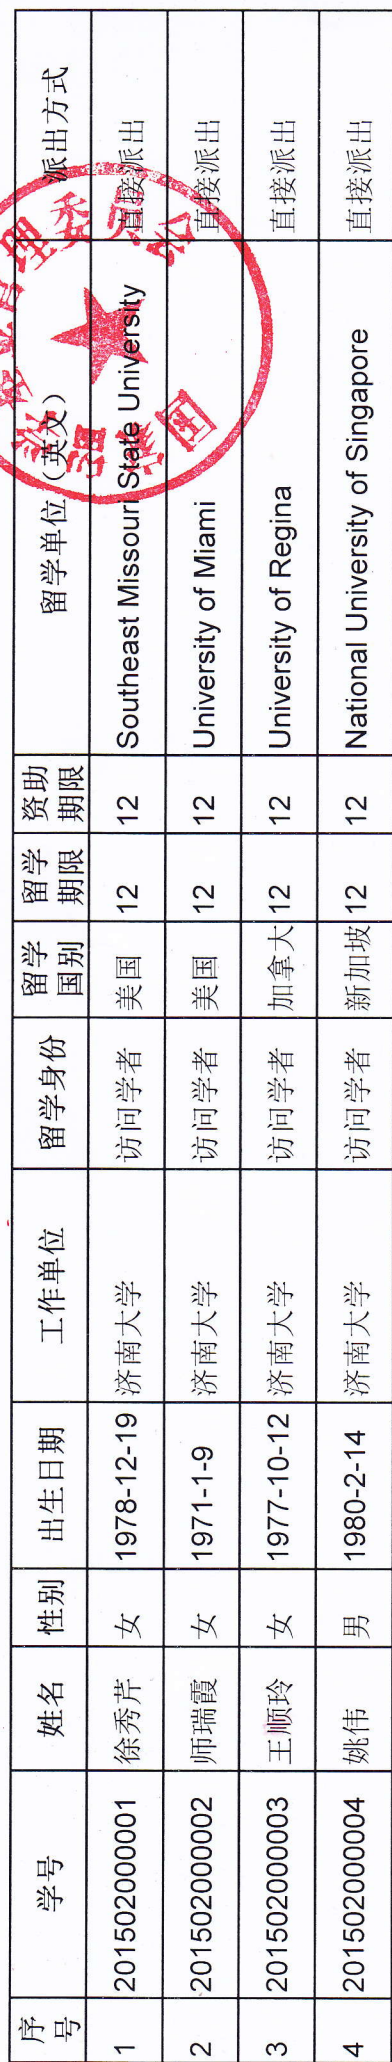 序号 学号 姓名 性别 出生日期 工作单位 留学身份 留学国别 留学期限 资助期限 留学单位(英文) 派出方式
1 201502000001 徐秀芹 女 1978-12-19 济南大学 访问学者 美国 12 12 Southeast Missouri State University 直接派出
2 201502000002 师瑞霞 女 1971-1-9 济南大学 访问学者 美国 12 12 University of Miami 直接派出
3 201502000003 王顺玲 女 1977-10-12 济南大学 访问学者 加拿大 12 12 University of Regina 直接派出
4 201502000004 姚伟 男 1980-2-14 济南大学 访问学者 新加坡 12 12 National University of Singapore 直接派出